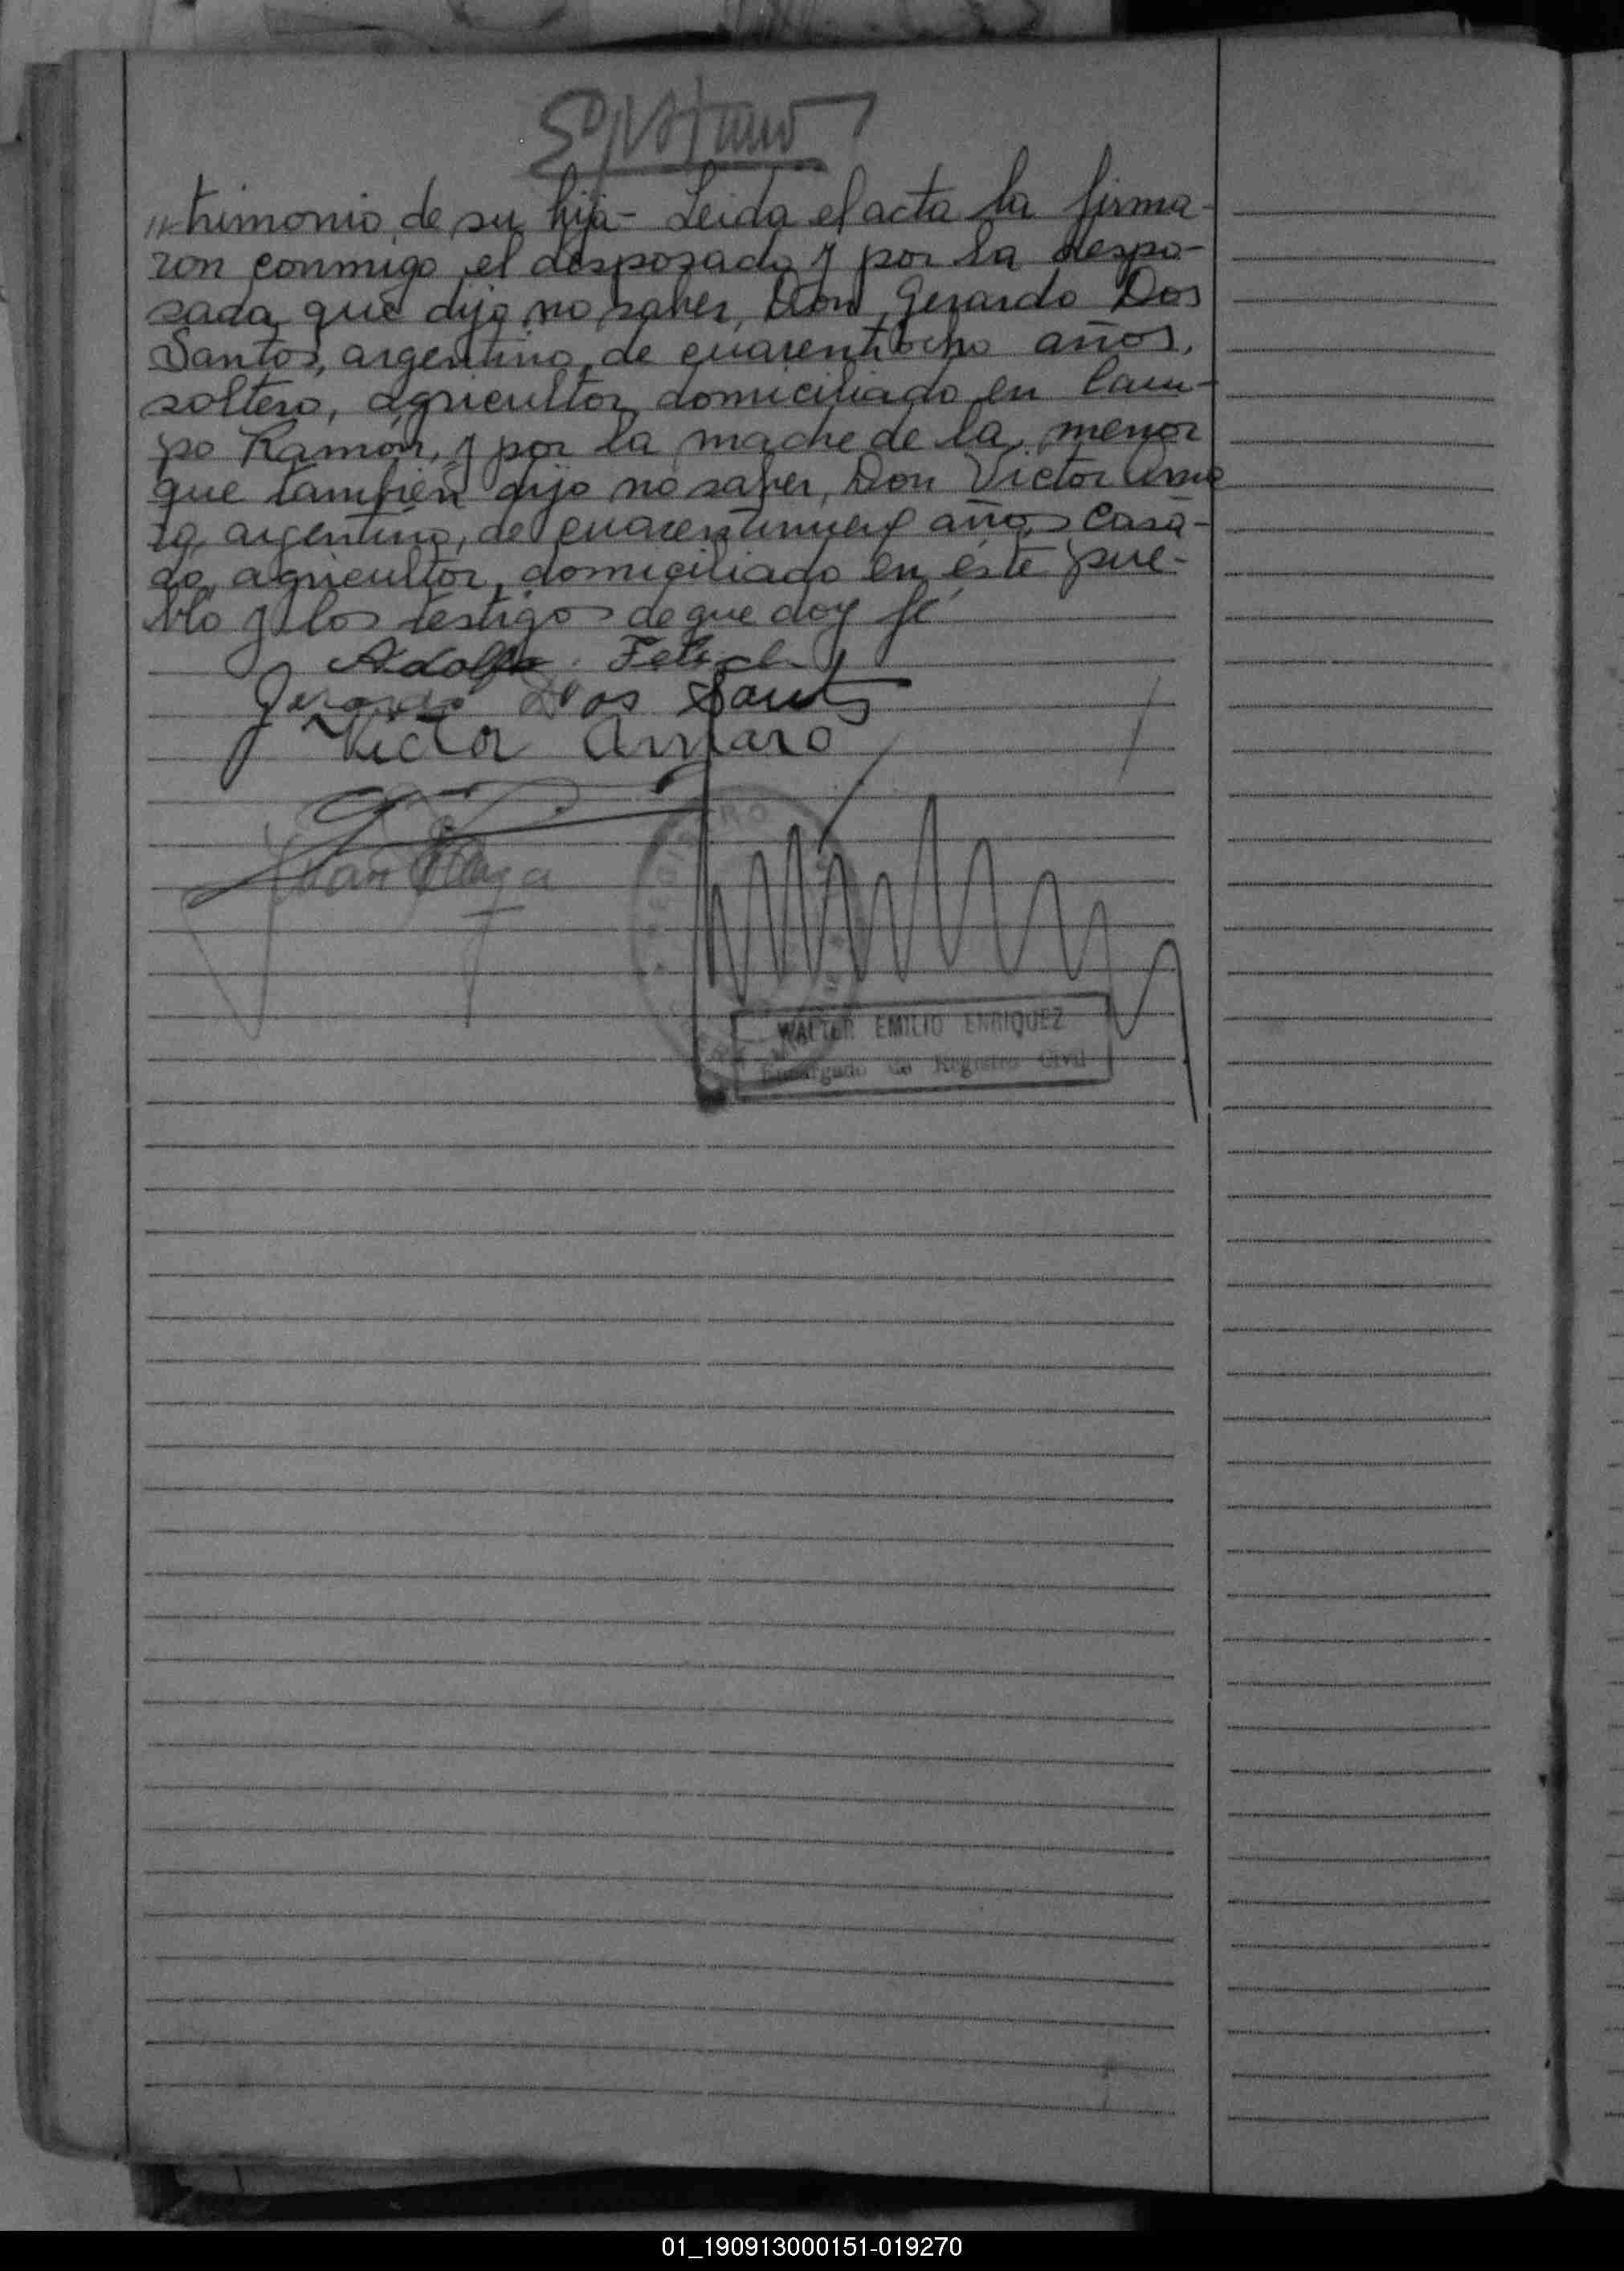 "trimonio de su hija - Leida el acta la firma-
ron conmigo el desposado y por la despo-
sada que dijo no saber, Don Gerardo Dos
Santos, argentino, de cuarentiocho años,
soltero, agricultor domiciliado en Cam-
po Ramón, y por la madre de la menor
que también dijo no saber, Don Victor Ama
ro, argentino, de cuarentinueve años, casa-
do, agricultor, domiciliado en éste pue-
blo y los testigos de que doy fé
Adolfo
Gerardo Dos Santos
Victor Amaro
Juan
REGISTRO
WALTER EMILIO ENRIQUEZ
Encargado de Registro Civil
01_190913000151-019270